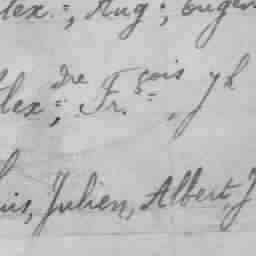 lex.=, Aug=, Eugen
lex=, dre Fr.çois=, J
uis, Julien, Albert, J